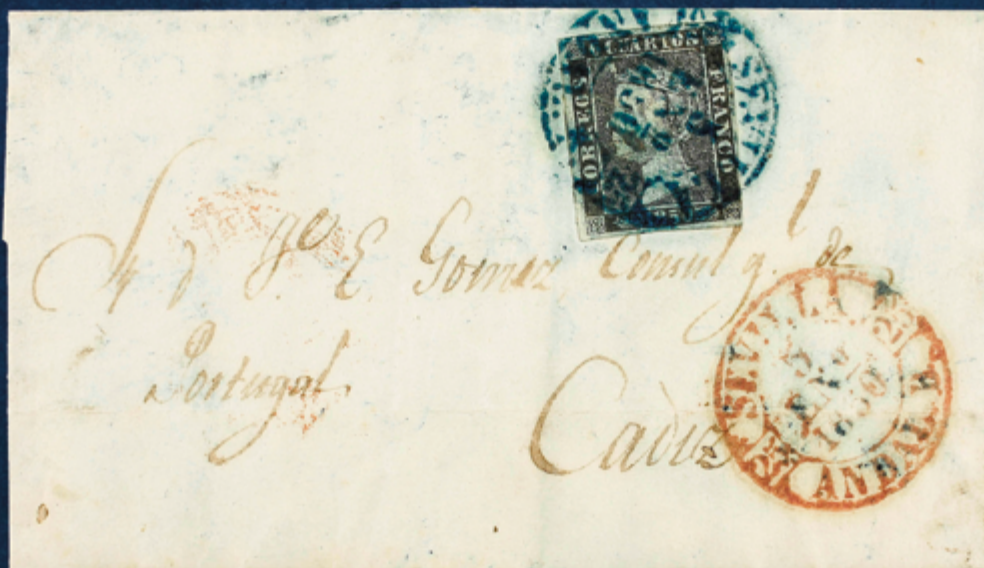 6 CUARTOS
CORREOS
FRANCO
S. d. Jge E. Gomez Consul gl de
Portugal
Cadiz
SEVILLA
5
ENE
1850
ANDAL. B